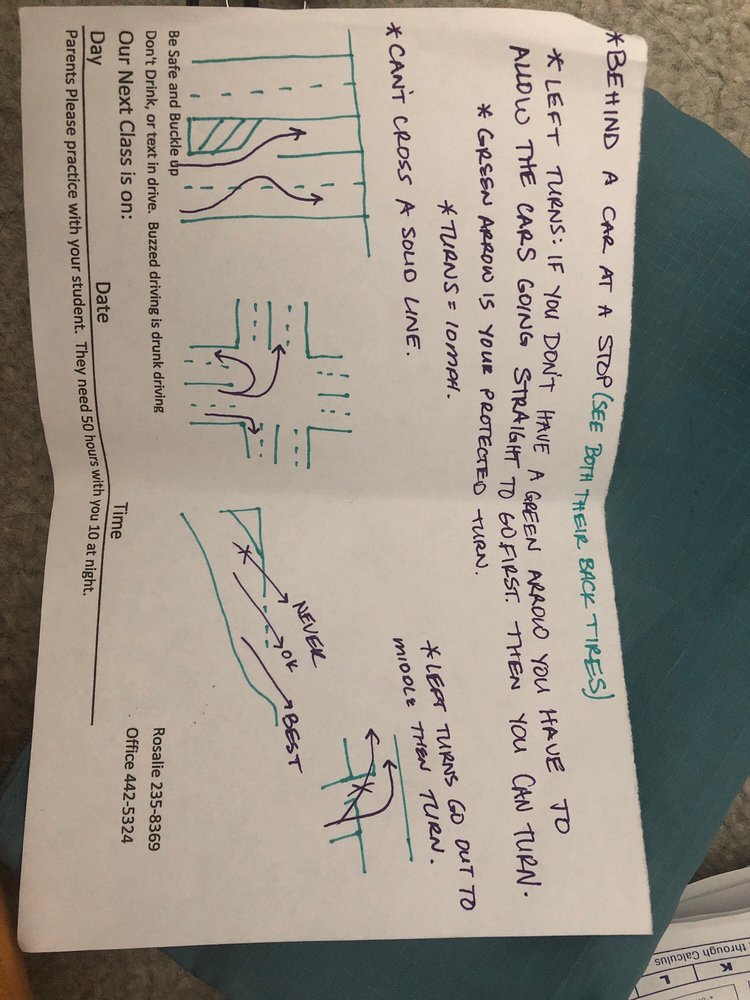 *BEHIND A CAR AT A STOP (SEE BOTH THEIR BACK TIRES)
*LEFT TURNS: IF YOU DON'T HAVE A GREEN ARROW YOU HAVE TO
ALLOW THE CARS GOING STRAIGHT TO GO FIRST. THEN YOU CAN TURN.
*GREEN ARROW IS YOUR PROTECTED TURN.
*TURNS = 10MPH.
*CAN'T CROSS A SOLID LINE.
*LEFT TURNS GO OUT TO
MIDDLE THEN TURN.
NEVER
OK
BEST
Be Safe and Buckle up
Don't Drink, or text in drive. Buzzed driving is drunk driving
Our Next Class is on:
Rosalie 235-8369
Office 442-5324
Day Date Time
Parents Please practice with your student. They need 50 hours with you 10 at night.
through Calculus
K
L